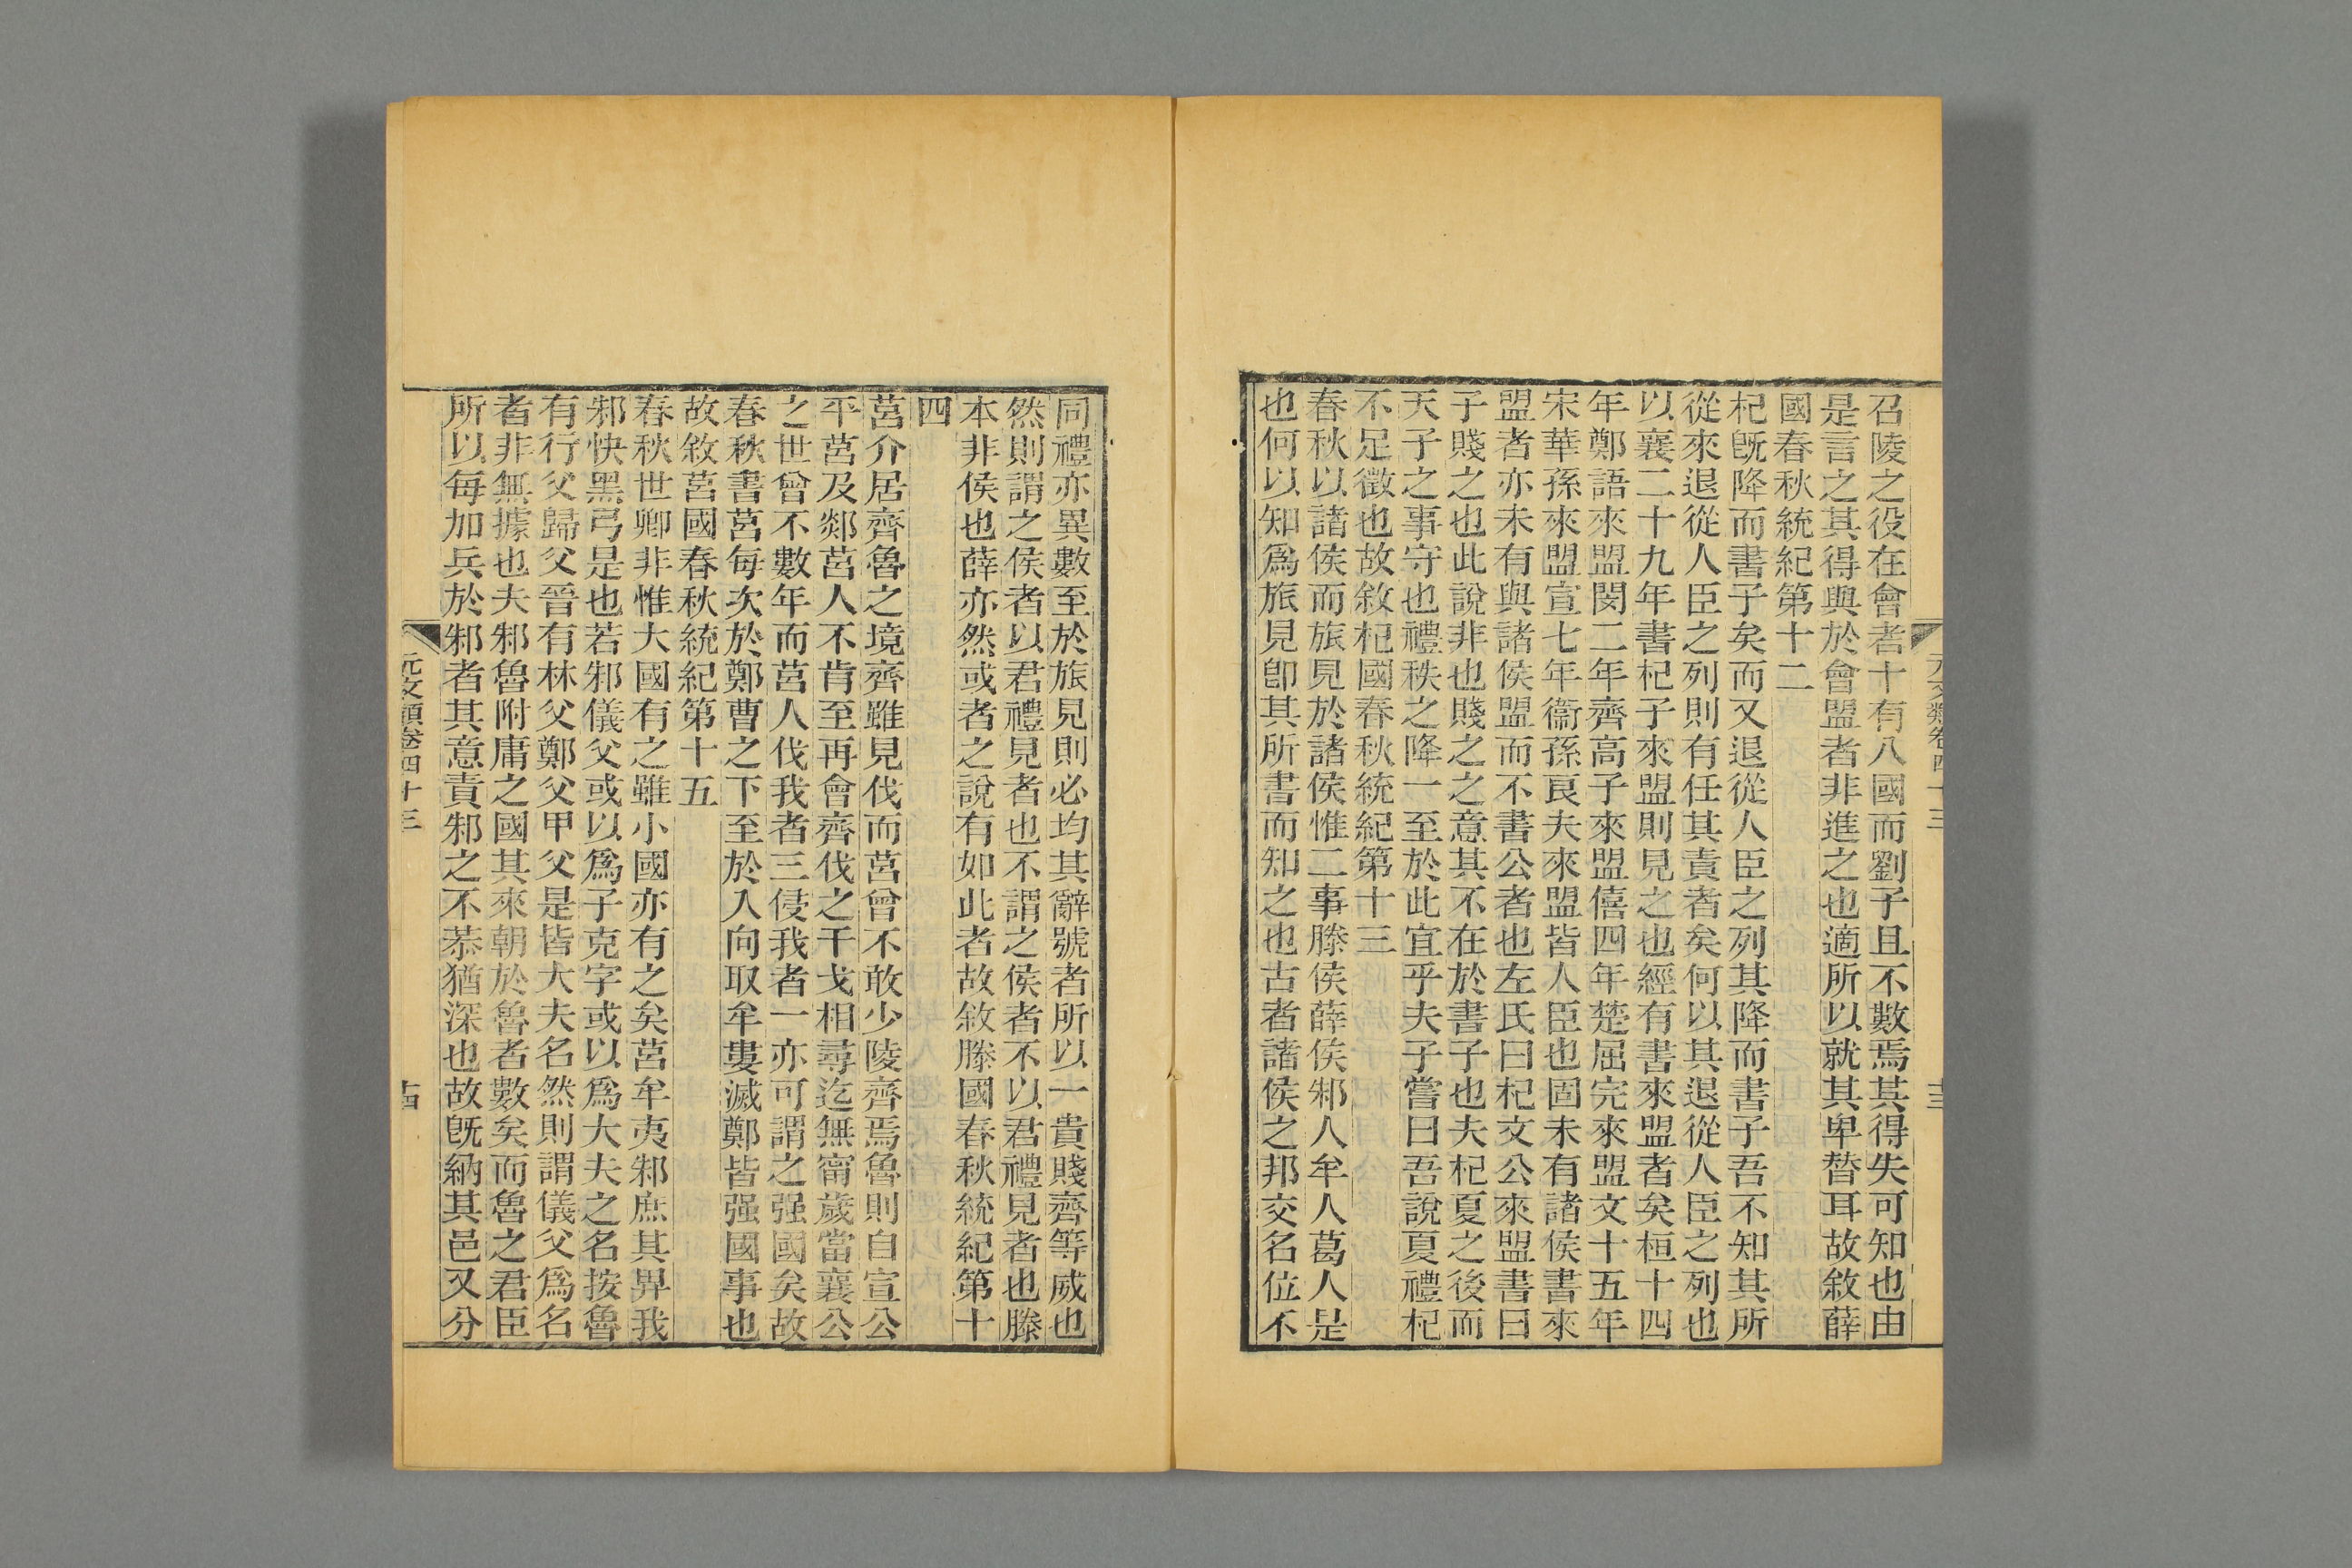 召陵之役在會者十有八國而劉子且不數焉其得失可知也由
是言之其得與於會盟者非進之也適所以就其卑替耳故敘薛
國春秋統紀第十二
杞旣降而書子矣而又退從人臣之列其降而書子吾不知其所
從來退從人臣之列則有任其責者矣何以其退從人臣之列也
以襄二十九年書杞子來盟則見之也經有書來盟者矣桓十四
年鄭語來盟閔二年齊高子來盟僖四年楚屈完來盟文十五年
宋華孫來盟宣七年衞孫良夫來盟皆人臣也固未有諸侯書來
盟者亦未有與諸侯盟而不書公者也左氏曰杞文公來盟書曰
子賤之也此說非也賤之之意其不在於書子也夫杞夏之後而
天子之事守也禮秩之降一至於此宜乎夫子嘗曰吾說夏禮杞
不足徵也故敘杞國春秋統紀第十三
春秋以諸侯而旅見於諸侯惟二事滕侯薛侯邾人牟人葛人是
也何以知爲旅見卽其所書而知之也古者諸侯之邦交名位不
元文類卷四十三
十三
同禮亦異數至於旅見則必均其辭號者所以一貴賤齊等威也
然則謂之侯者以君禮見者也不謂之侯者不以君禮見者也滕
本非侯也薛亦然或者之說有如此者故敘滕國春秋統紀第十
四
莒介居齊魯之境齊雖見伐而莒曾不敢少陵齊焉魯則自宣公
平莒及郯莒人不肯至再會齊伐之干戈相尋迄無甯歲當襄公
之世曾不數年而莒人伐我者三侵我者一亦可謂之强國矣故
春秋書莒每次於鄭曹之下至於入向取牟婁滅鄫皆强國事也
故敘莒國春秋統紀第十五
春秋世卿非惟大國有之雖小國亦有之矣莒牟夷邾庶其畀我
邾快黑弓是也若邾儀父或以爲子克字或以爲大夫之名按魯
有行父歸父晉有林父鄭父甲父是皆大夫名然則謂儀父爲名
者非無據也夫邾魯附庸之國其來朝於魯者數矣而魯之君臣
所以每加兵於邾者其意責邾之不恭猶深也故旣納其邑又分
元文類卷四十三
十四